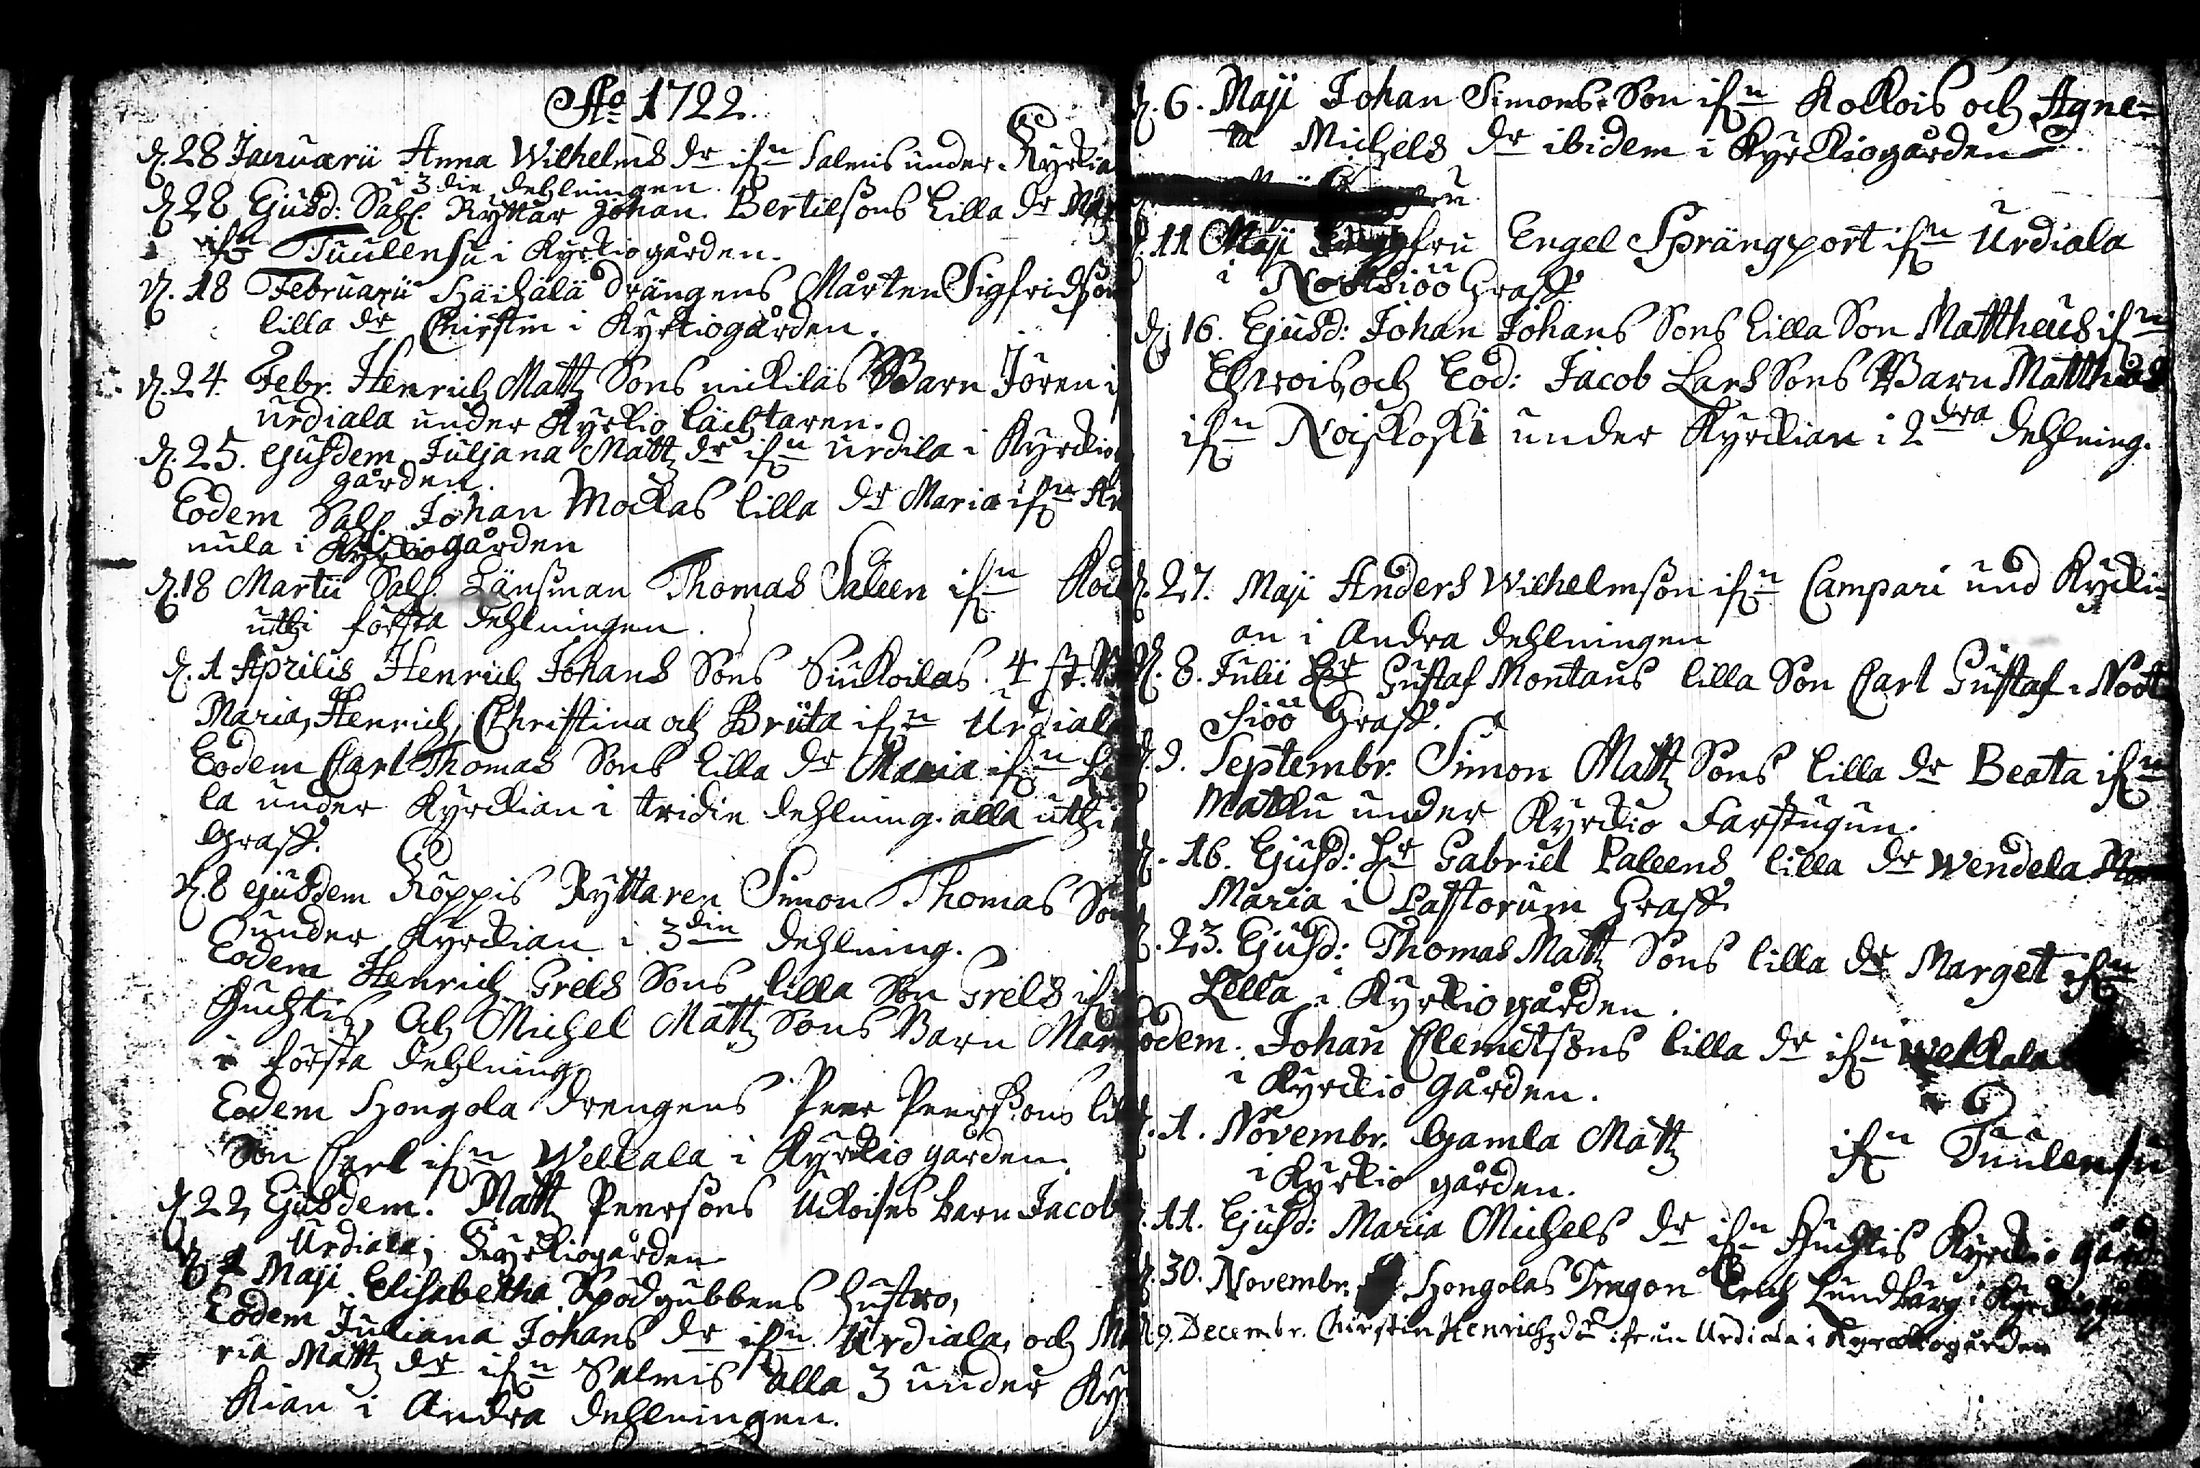 Ao 1722.
d. 28 Januarii Anna Wilhelms dr ifrn Salmis under Kyrkia
i 3die dehlningen.
d. 28 Ejusd: Sahl. Ryttar Johan Bertilsons lilla dr
ifrn Tuulensu i Kyrkiogården.
d. 18 Februarii Häihälä Drängens Mårten Sigfridson
lilla dr Chirstin i Kyrkiogården.
d. 24. Febr. Henrich Mattz Sons nickiläs Barn Jören i
urdiala under Kyrkio läcktaren.
d. 25. ejusdem Juljana Mattz dr ifrn urdila i Kyrckio
gården.
Eodem Sahl. Johan Mockas lilla dr Maria ifrn An
nula i Kyrkiogården
d. 18 Martii Sahl. Länsman Thomas Saleen ifrn
uthi första dehlningen.
d. 1 Aprilis Henrich Johans Sons Siukoilas. 4 st.
Maria, Henrich, Christina och Brüta ifrn Urdiala
Eodem Carl Thomas Sons lilla dr Maria ifrn
la under Kyrckian i tridie dehlning. alla uthi
Graff.
d. 8 ejusdem Köppis Ryttaren Simon Thomas Son
under Kyrckian i 3die dehlning.
Eodem Henrich Grels Sons lilla Son Grels ifrn
Huchtis, Och Michel Mattz Sons Barn
i första dehlning.
Eodem Hongola drengens Peer Peersons lil
Son Carl ifrn Wellala i Kyrckio gården.
d. 22 Ejusdem. Mattz Peersons Uckoises barn Jacob
Urdiala i Kyrkiogården
d. 4 Maji Elisabetha Spodgubbens hustro,
Eodem Juliana Johans dr ifrn Urdiala, och Ma
ria Mattz dr ifrn Salmis alla 3 under Kyr
kian i Andra dehlningen.
d. 6. Maji Johan Simons Son ifrn Kokois och Agne-
ta Michels dr ibidem i Kyrckiogården
d. 11 Maji Jungfru Engel Sprängport ifrn Urdiala
i Nootsiöö Graff.
d. 16. Ejusd: Johan Johans Sons lilla Son Mattheus ifrn
och Eod: Jacob Lars Sons Barn Mattheus
ifrn Noiskoski under Kyrckian i 2dra dehlning.
d. 27. Maji Anders Wilhelmson ifrn Campari und Kyrcki-
an i Andra dehlningen
d. 8. Julii Hr Gustaf Montaus lilla Son Carl Gustaf i Noot
siöö Graff.
d. 9. Septembr. Simon Mattz Sons lilla dr Beata ifrn
Matku under Kyrckio Farstugun.
d. 16. Ejusd: Hr Gabriel Paleens lilla dr Wendela
Maria i Pastorum Graff.
d. 23. Ejusd: Thomas Mattz Sons lilla dr Marget ifrn
Lella i Kyrkiogården.
Eodem. Johan Clemetsons lilla dr ifrn Wellala
i Kyrckio gården.
d. 1. Novembr. Gamla Mattz ifrn Tuulensu
i Kyrkio gården.
d. 11. Ejusd: Maria Michels dr ifrn Huchtis Kyrckio gård
d. 30. Novembr. Hongolas Dragon Erich Lundbarg i Kyrckiogår
d. 9. Decembr. Chirstin Henrichz dr ifrån Urdiala i Kyrckiogården